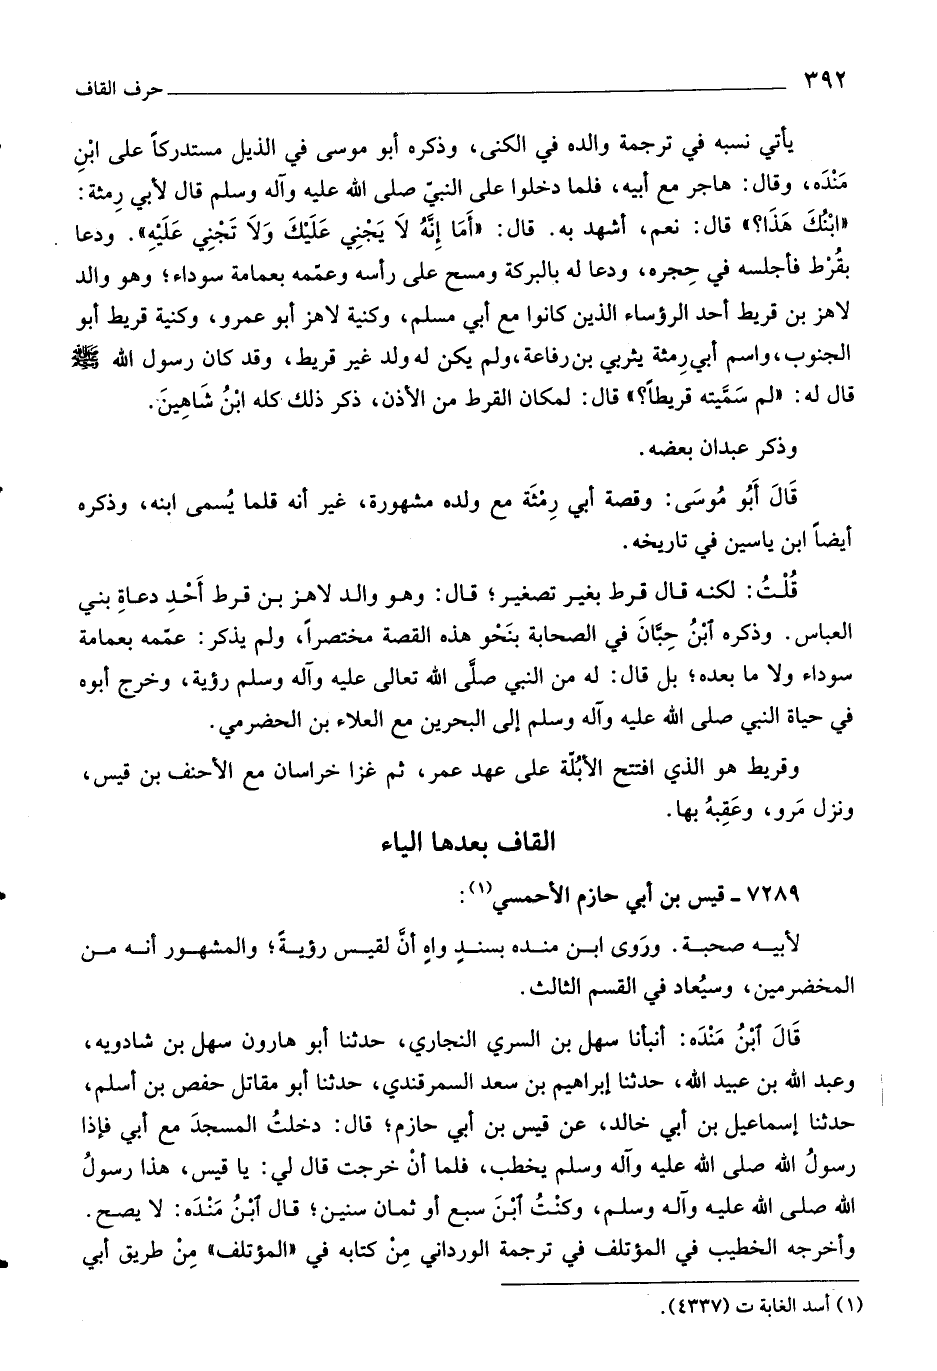 ٣٩٢ حرف القاف
يأتي نسبه في ترجمة والده في الكنى، وذكره أبو موسى في الذيل مستدركاً على ابْنِ
مَنْدَه، وقال: هاجر مع أبيه، فلما دخلوا على النبيّ صلى الله عليه وآله وسلم قال لأبي رِمثة:
«ابْنُكَ هَذَا؟» قال: نعم، أشهد به. قال: «أَمَا إِنَّهُ لَا يَجْنِي عَلَيْكَ وَلَا تَجْنِي عَلَيْهِ». ودعا
بقُرْط فأجلسه في حِجره، ودعا له بالبركة ومسح على رأسه وعمّمه بعمامة سوداء؛ وهو والد
لاهز بن قريط أحد الرؤساء الذين كانوا مع أبي مسلم، وكنية لاهز أبو عمرو، وكنية قريط أبو
الجنوب، واسم أبي رِمثة يثربي بن رفاعة، ولم يكن له ولد غير قريط، وقد كان رسول الله ﷺ
قال له: «لم سَمَّيته قريطاً؟» قال: لمكان القرط من الأذن، ذكر ذلك كله ابْنُ شَاهِينَ.
وذكر عبدان بعضه.
قَالَ أَبُو مُوسَى: وقصة أبي رِمْثَة مع ولده مشهورة، غير أنه قلما يُسمى ابنه، وذكره
أيضاً ابن ياسين في تاريخه.
قُلْتُ: لكنه قال قرط بغير تصغير؛ قال: وهو والد لاهز بن قرط أَحْدِ دعاةِ بني
العباس. وذكره ٱبْنُ حِبَّانَ في الصحابة بنَحْو هذه القصة مختصراً، ولم يذكر: عمّمه بعمامة
سوداء ولا ما بعده؛ بل قال: له من النبي صلَّى الله تعالى عليه وآله وسلم رؤية، وخرج أبوه
في حياة النبي صلى الله عليه وآله وسلم إلى البحرين مع العلاء بن الحضرمي.
وقريط هو الذي افتتح الأُبُلّة على عهد عمر، ثم غزا خراسان مع الأحنف بن قيس،
ونزل مَرو، وعَقِبهُ بها.
القاف بعدها الياء
٧٢٨٩ ـ قيس بن أبي حازم الأحمسي(١):
لأبيه صحبة. ورَوى ابن منده بسندٍ واهٍ أنَّ لقيس رؤيةً؛ والمشهور أنه من
المخضرمين، وسيُعاد في القسم الثالث.
قَالَ ٱبْنُ مَنْدَه: أنبأنا سهل بن السري النجاري، حدثنا أبو هارون سهل بن شادويه،
وعبد الله بن عبيد الله، حدثنا إبراهيم بن سعد السمرقندي، حدثنا أبو مقاتل حفص بن أسلم،
حدثنا إسماعيل بن أبي خالد، عن قيس بن أبي حازم؛ قال: دخلتُ المسجدَ مع أبي فإذا
رسولُ الله صلى الله عليه وآله وسلم يخطب، فلما أنْ خرجت قال لي: يا قيس، هذا رسولُ
الله صلى الله عليه وآله وسلم، وكنْتُ ٱبْنَ سبع أو ثمان سنين؛ قال ٱبْنُ مَنْدَه: لا يصح.
وأخرجه الخطيب في المؤتلف في ترجمة الورداني مِنْ كتابه في «المؤتلف» مِنْ طريق أبي
(١) أسد الغابة ت (٤٣٣٧).